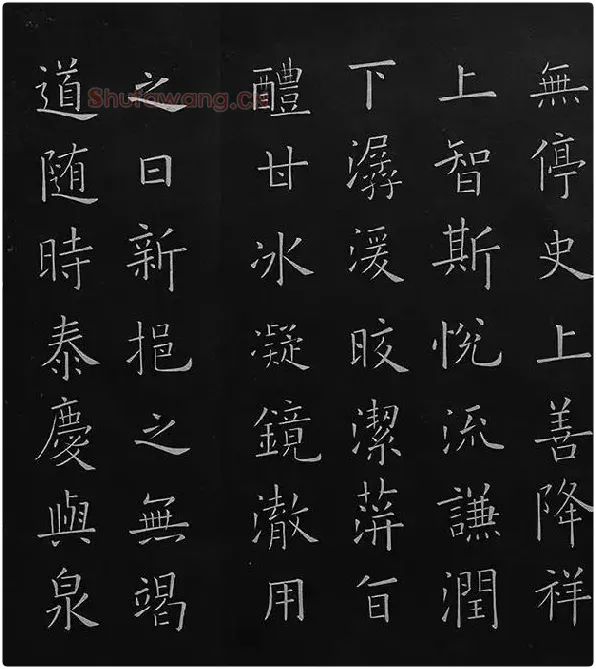 無停史上善降祥
上智斯悅流謙潤
下潺湲晈潔蓱旨
醴甘冰凝鏡澈用
之日新挹之無竭
道随時泰慶與泉
Shufawang.cn